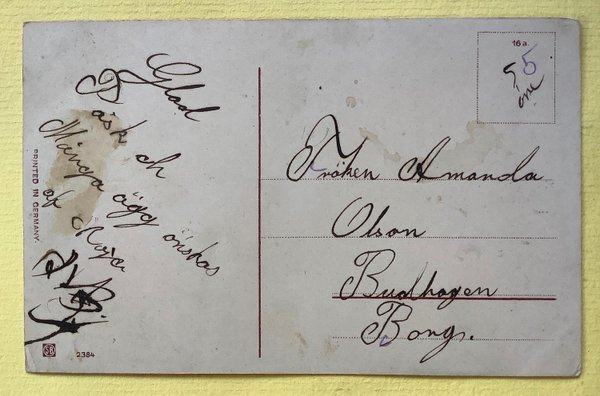 Glad
Påsk ch
Många ägg önskas
af Maja
PRINTED IN GERMANY.
2384
16 a.
5
5
öre
Fröken Amanda
Olson
Budhagen
Borgs.